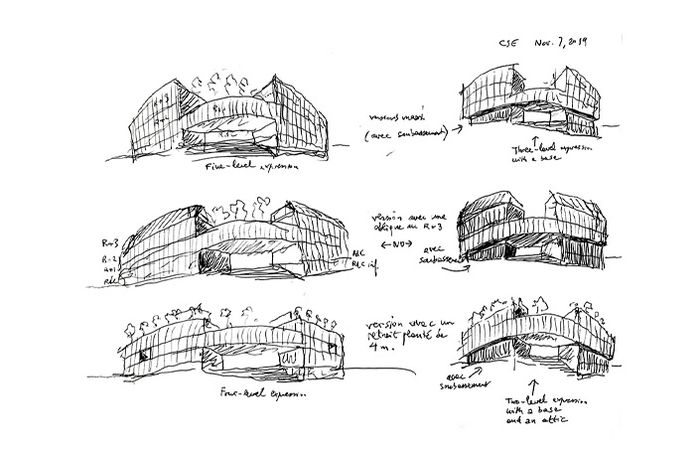 CSE Nov. 7, 2019
R+3
(avec soubassement)
Five-level expression
Three-level expression
with a base
version avec une
oblique au R+3
R+3
R+2
R+1
RdC
avec
soubassement
RdC
RdC inf.
version avec un
retrait planté de
4 m.
avec
soubassement
Four-level expression
Two-level expression
with a base
and an attic